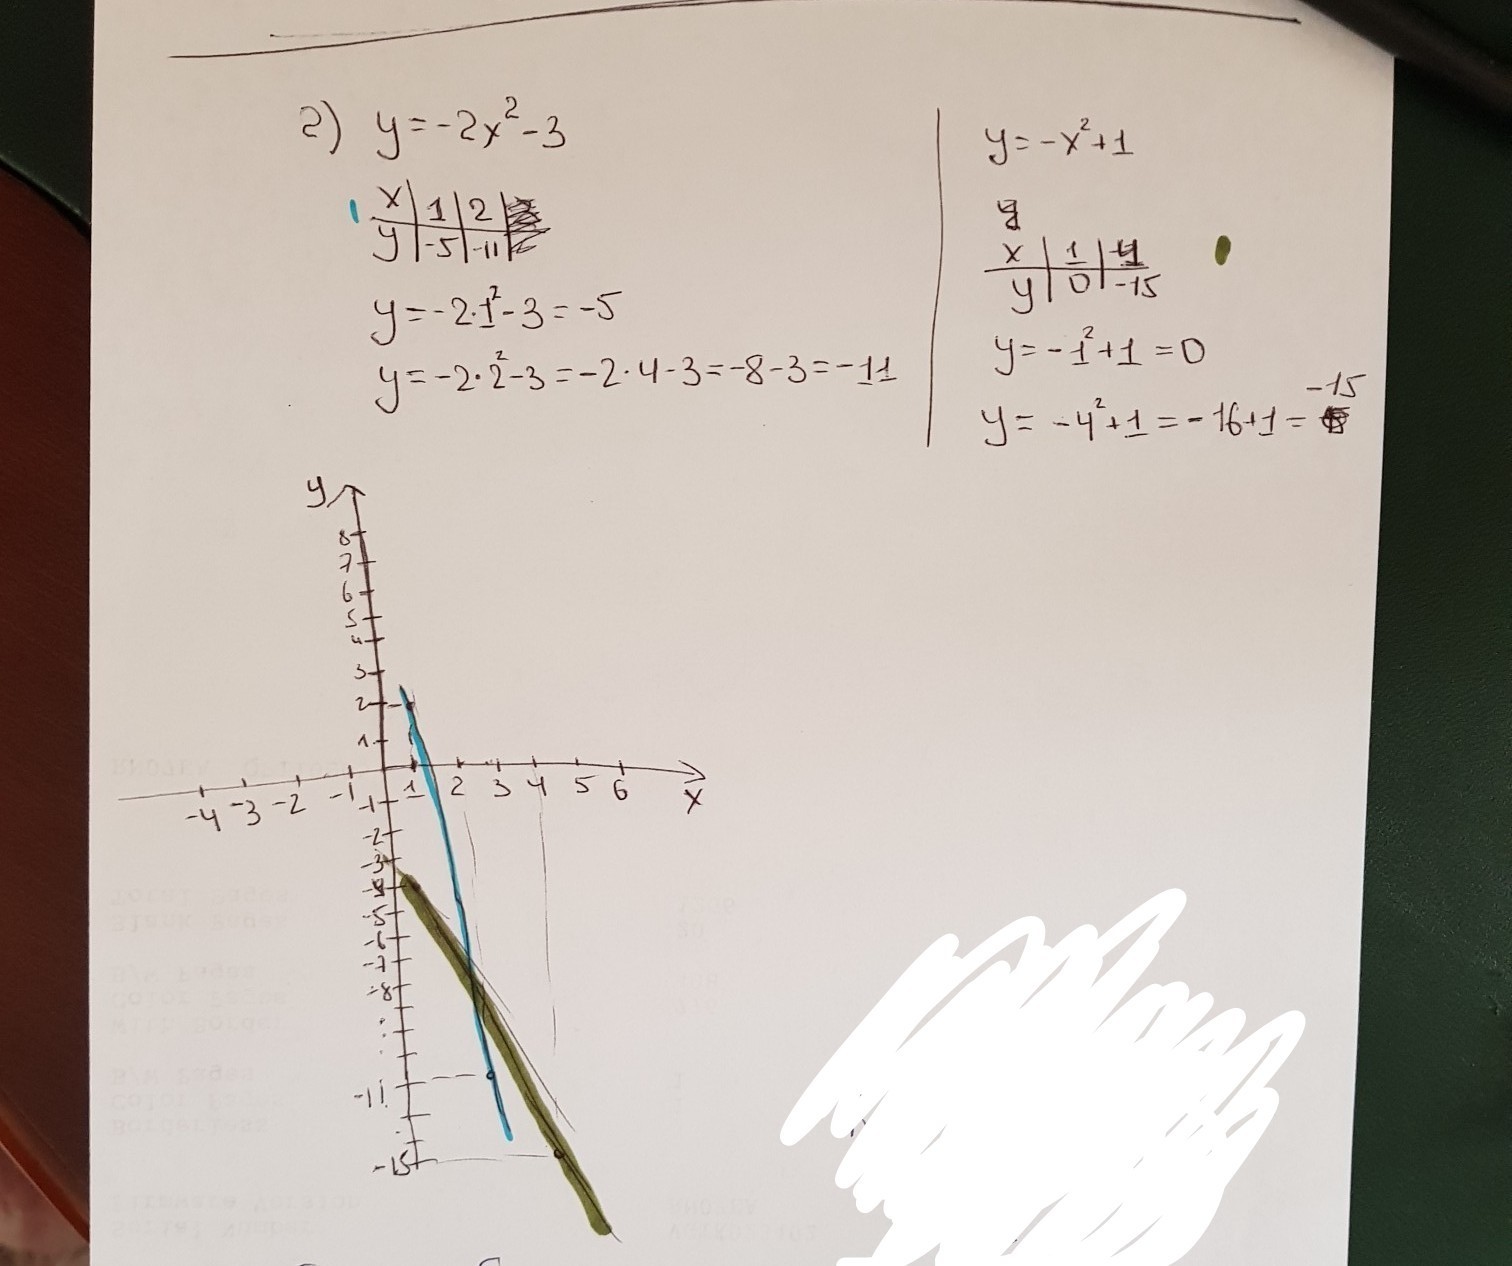 2) y=-2x²-3
x | 1 | 2
y | -5 | -11
y=-2·1²-3=-5
y=-2·2²-3=-2·4-3=-8-3=-11
y=-x²+1
x | 1 | 4
y | 0 | -15
y=-1²+1=0
y=-4²+1=-16+1=-15
y
8
7
6
5
4
3
2
1
-4 -3 -2 -1 1 2 3 4 5 6
x
-1
-2
-3
-4
-5
-6
-7
-8
-11
-15